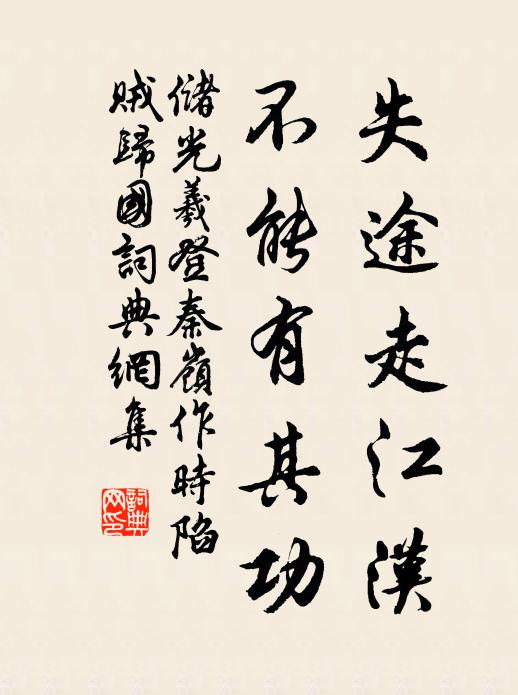 失途走江漢
不能有其功
儲光羲登秦嶺作時陷
賊歸國詞典網集
詞典
网印